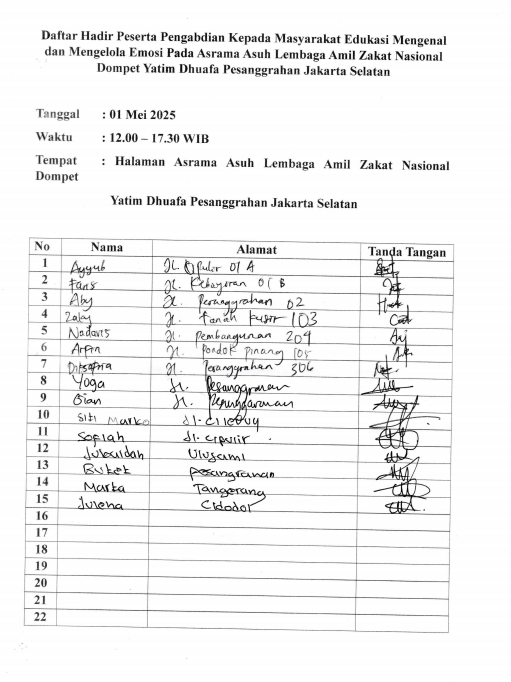 Daftar Hadir Peserta Pengabdian Kepada Masyarakat Edukasi Mengenal
dan Mengelola Emosi Pada Asrama Asuh Lembaga Amil Zakat Nasional
Dompet Yatim Dhuafa Pesanggrahan Jakarta Selatan
Tanggal : 01 Mei 2025
Waktu : 12.00 – 17.30 WIB
Tempat : Halaman Asrama Asuh Lembaga Amil Zakat Nasional
Dompet
Yatim Dhuafa Pesanggrahan Jakarta Selatan
No Nama Alamat Tanda Tangan
1 Ayyub Jl. 01 A
2 Faris Jl. Kebayoran 01 B
3 Aby Jl. Pesanggrahan 02
4 Zalay Jl. Tanah Kusir 103
5 Jl. Pembangunan 209
6 Arfin Jl. Pondok Pinang 105
7 Jl. Pesanggrahan 306
8 Yoga Jl. Pesanggrahan
9 Gian Jl.
10 Siti Marko Jl. Cileduy
11 Sofiah Jl. Cipulir
12 Jubaidah Ulusami
13 Buket Pesangrahan
14 Marka Tangerang
15 Julena Cidodol
16
17
18
19
20
21
22